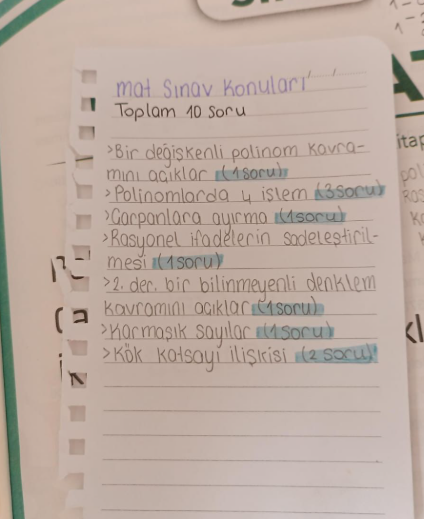 mat Sınav Konuları
Toplam 10 Soru
>Bir değişkenli polinom kavra-
mını açıklar (1soru)
>Polinomlarda 4 işlem (3soru)
>Çarpanlara ayırma (1soru)
>Rasyonel ifadelerin sadeleştiril-
mesi (1soru)
>2. der. bir bilinmeyenli denklem
kavramını açıklar (1soru)
>Karmaşık sayılar (1soru)
>Kök katsayı ilişkisi (2 soru)